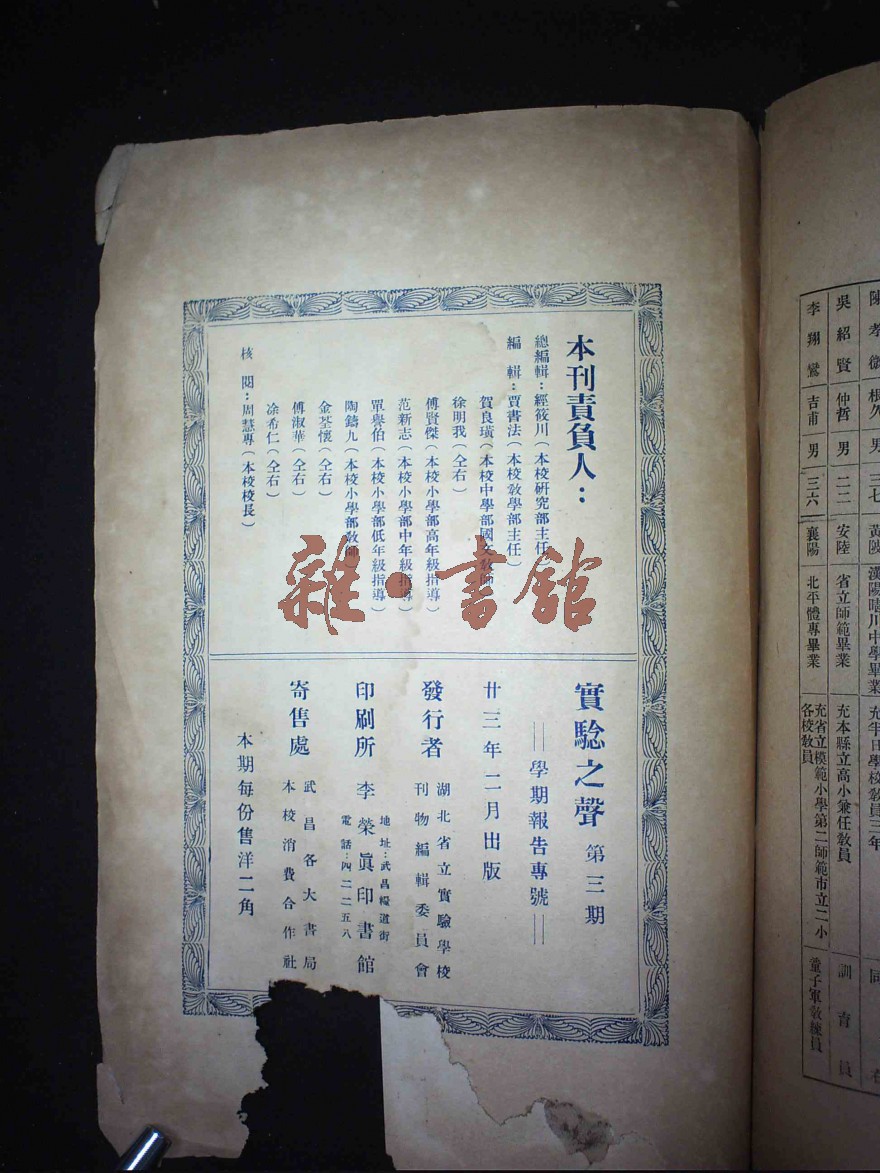 本刊責負人：
總編輯：經筱川（本校研究部主任）
編輯：賈書法（本校教學部主任）
賀良璜（本校中學部國文教師）
徐明我（仝右）
傅賢傑（本校小學部高年級指導）
范新志（本校小學部中年級指導）
單譽伯（本校小學部低年級指導）
陶鑄九（本校小學部教師）
金荃懷（仝右）
傅淑華（仝右）
凃希仁（仝右）
核閱：周慧專（本校校長）
實驗之聲 第三期
＝學期報告專號＝
廿三年二月出版
發行者 湖北省立實驗學校
刊物編輯委員會
印刷所 李榮眞印書館
地址：武昌糧道街
電話：四二二五八
寄售處 武昌各大書局
本校消費合作社
本期每份售洋二角
雜·書館
陳孝 根久 男 三七 黃陂 漢陽晴川中學畢業 充半日學校教員三年 同右
吳紹賢 仲哲 男 二二 安陸 省立師範畢業 充本縣立高小兼任教員 訓育員
李翔鸞 吉甫 男 三六 襄陽 北平體專畢業 充省立模範小學第二師範市立二小各校教員 童子軍教練員